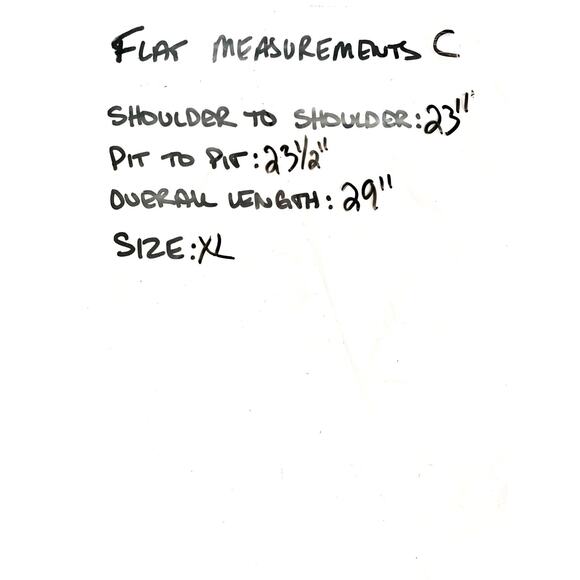 FLAT MEASUREMENTS C
SHOULDER TO SHOULDER: 23"
PIT TO PIT: 23½"
OVERALL LENGTH: 29"
SIZE: XL